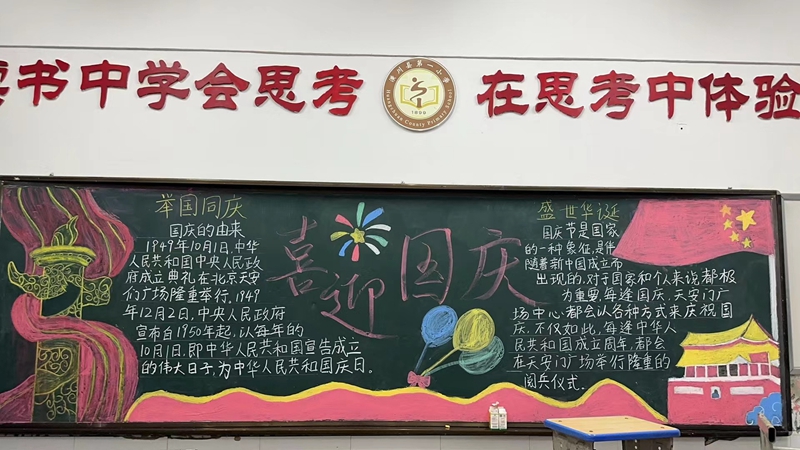 读书中学会思考
在思考中体验
潢川县第一小学
Huangchuan County Primary School
1890
举国同庆
国庆的由来
1949年10月1日,中华
人民共和国中央人民政
府成立典礼在北京天安
们广场隆重举行,1949
年12月2日,中央人民政府
宣布自1950年起,认每年的
10月1日,即中华人民共和国宣告成立
的伟大日子,为中华人民共和国庆日。
喜迎国庆
盛世华诞
国庆节是国家
的一种象征,是伴
随着新中国成立而
出现的,对于国家和个人来说都极
为重要,每逢国庆,天安门广
场中心都会认各种方式来庆祝国
庆,不仅如此,每逢中华人
民共和国成立周年,都会
在天安门广场举行隆重的
阅兵仪式.